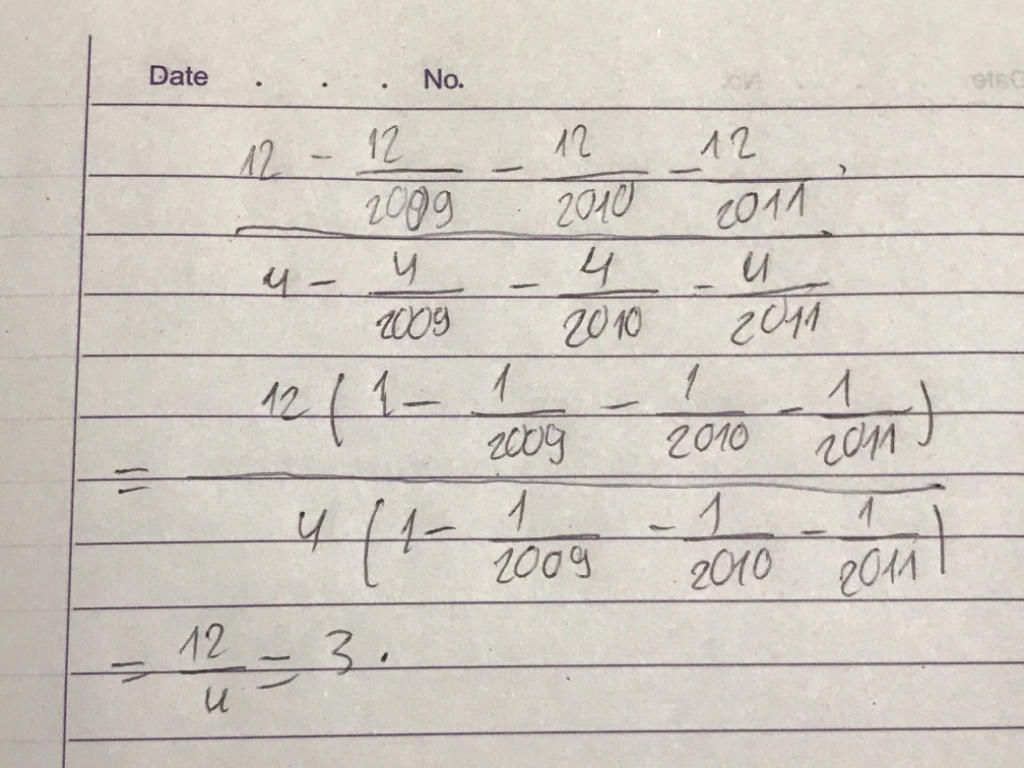 Date . . . No.
12 - 12/2009 - 12/2010 - 12/2011
4 - 4/2009 - 4/2010 - 4/2011
= 12 ( 1 - 1/2009 - 1/2010 - 1/2011 )
4 ( 1 - 1/2009 - 1/2010 - 1/2011 )
= 12/4 = 3 .